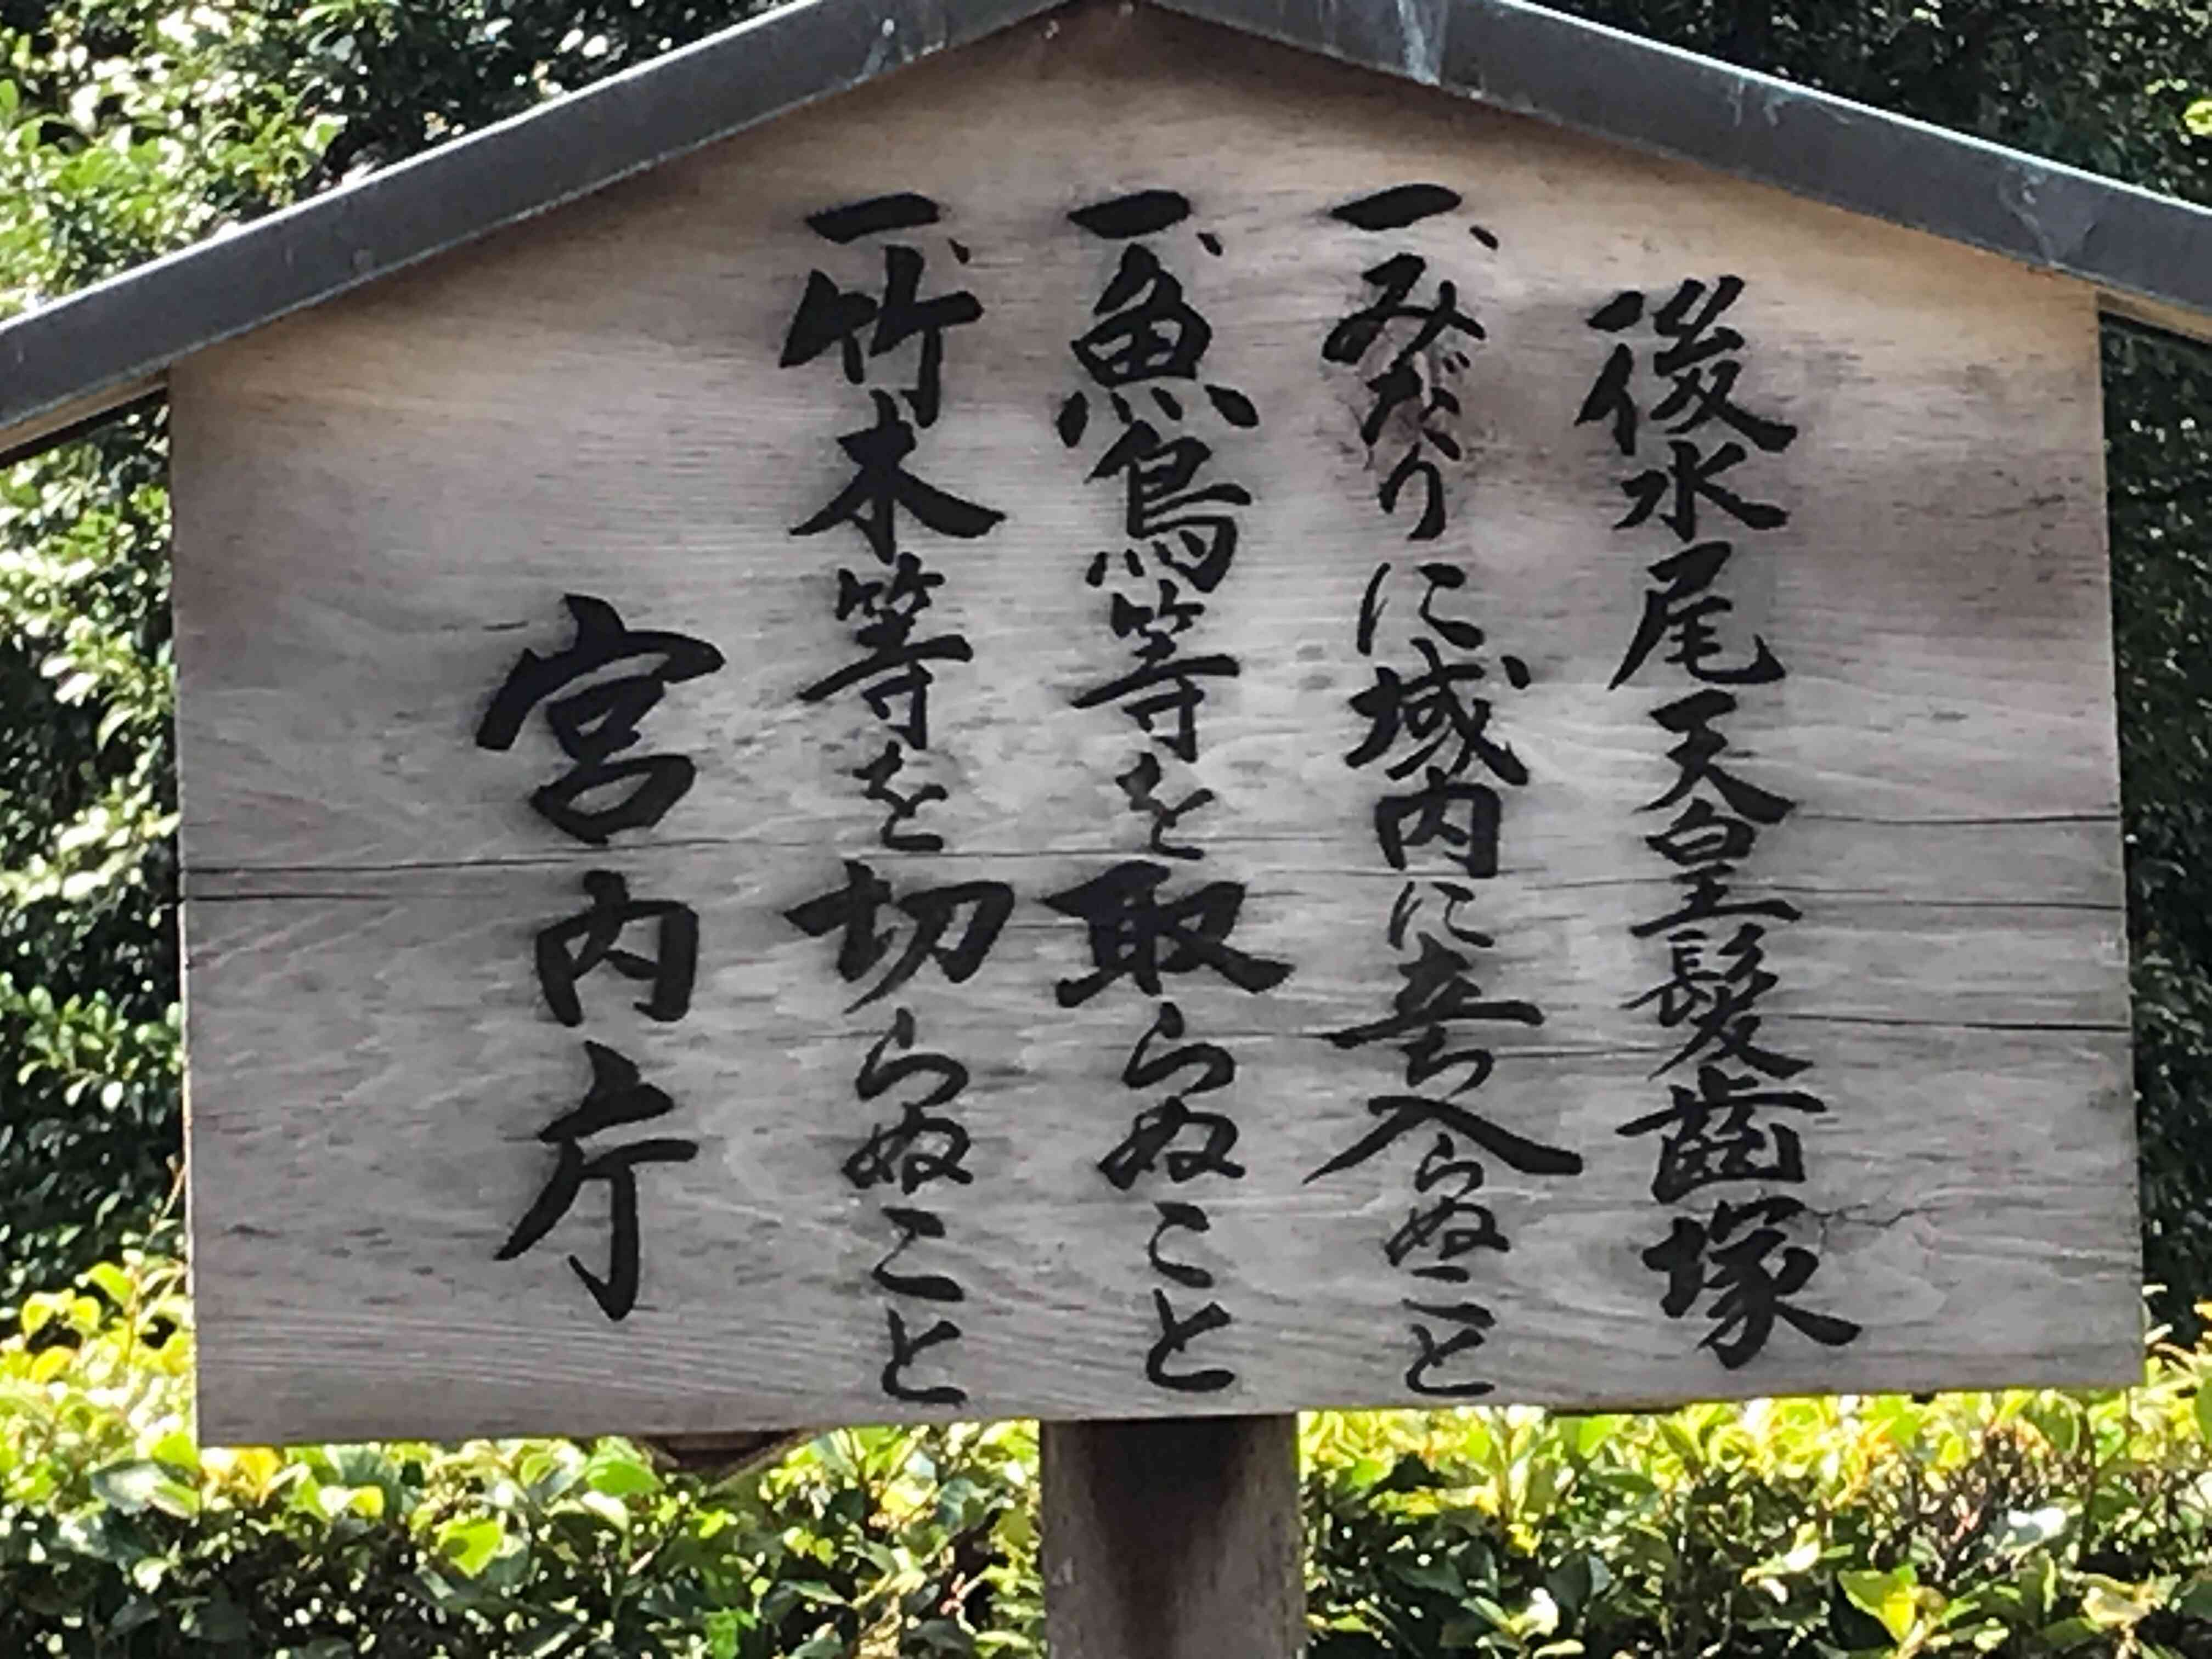 後水尾天皇髪歯塚
一、みだりに域内に立ち入らぬこと
一、魚鳥等を取らぬこと
一、竹木等を切らぬこと
宮内庁